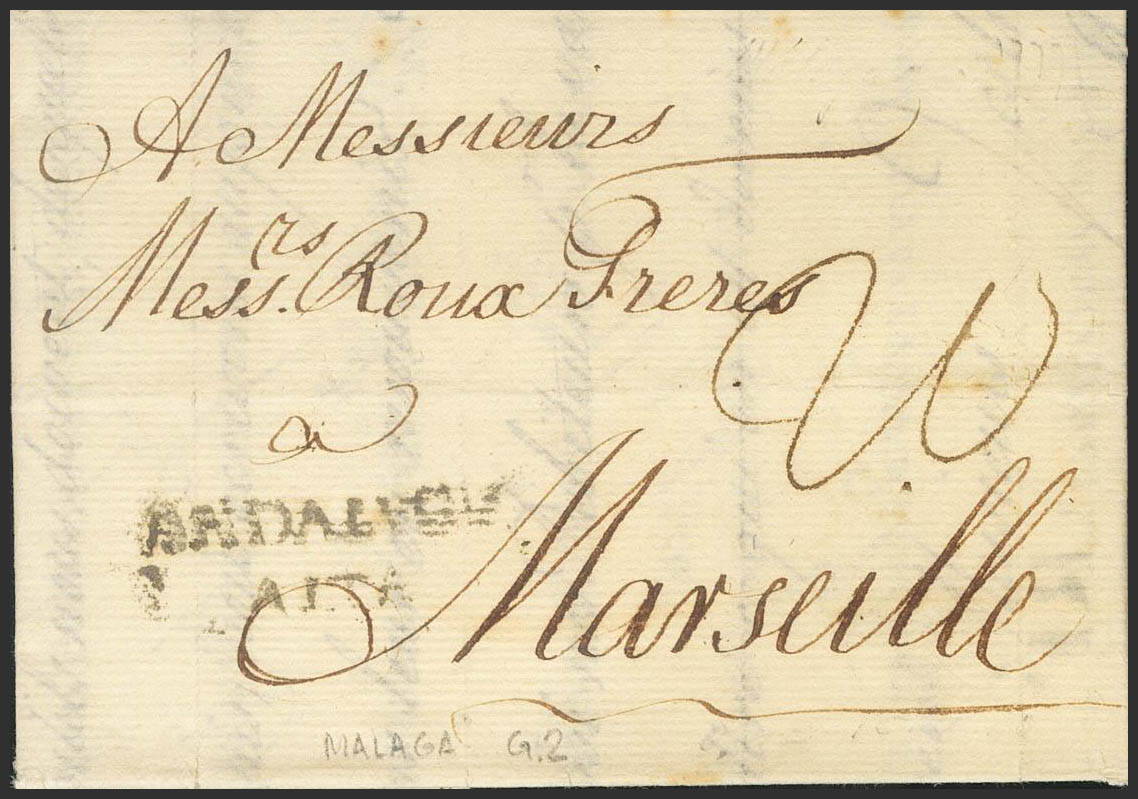 A Messieurs
Mess.rs Roux Freres
a
ANDALUCIA
ALTA
Marseille
MALAGA G.2